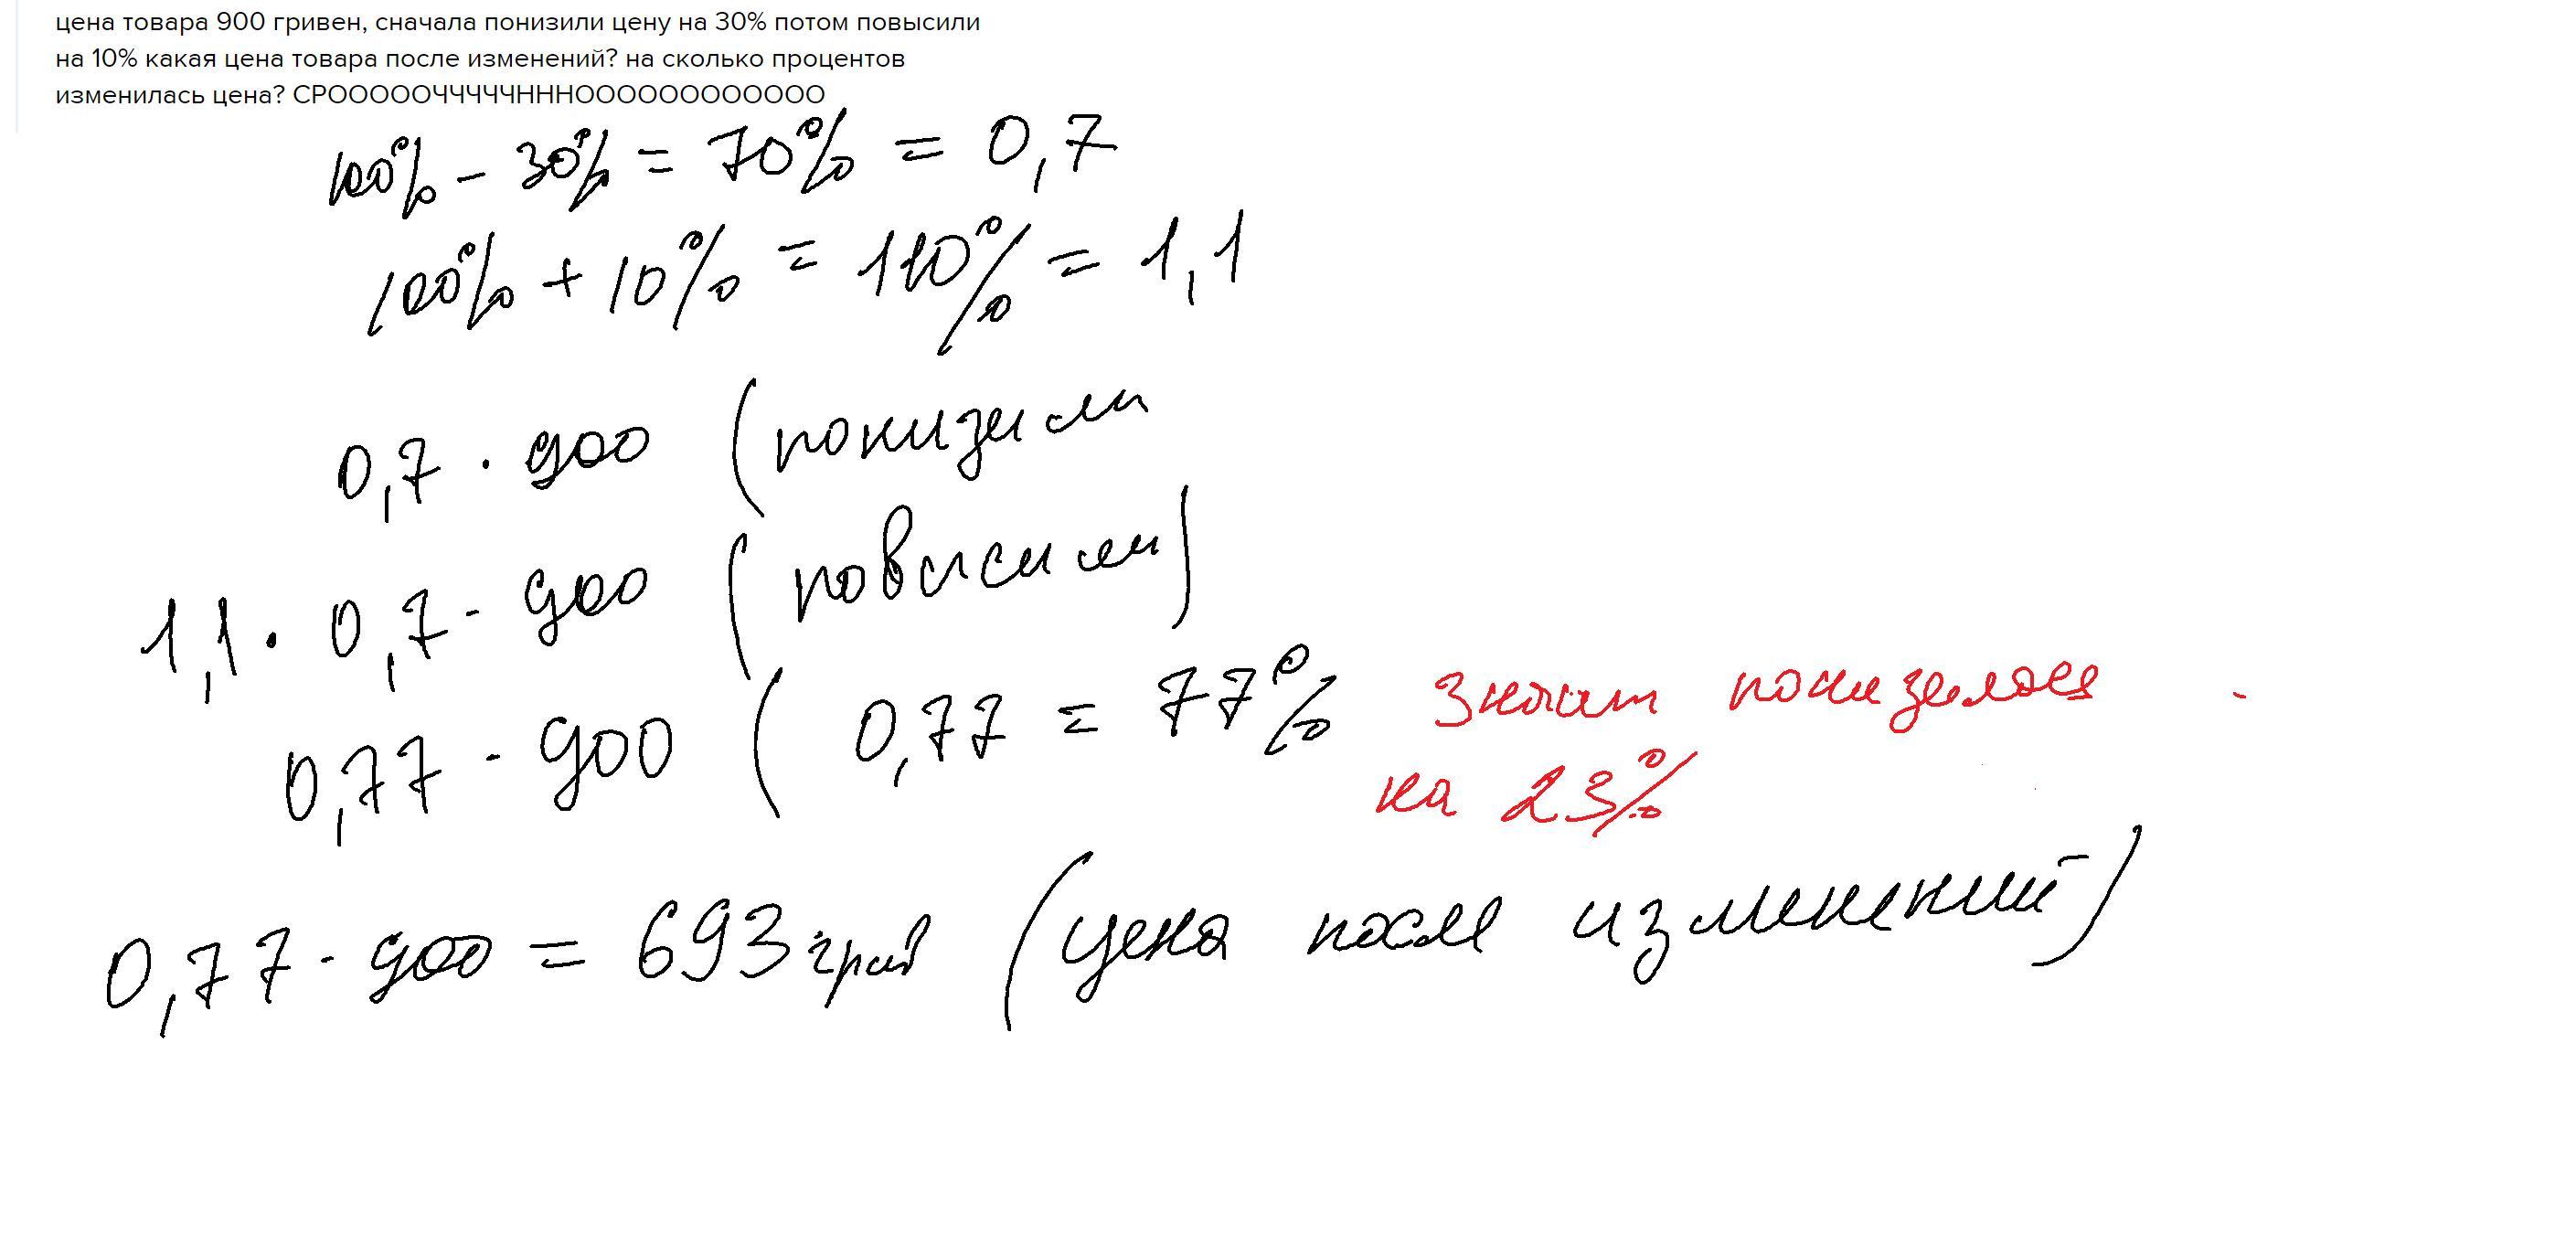 цена товара 900 гривен, сначала понизили цену на 30% потом повысили
на 10% какая цена товара после изменений? на сколько процентов
изменилась цена? СРОООООЧЧЧЧЧНННОООООООООООО
100% - 30% = 70% = 0,7
100% + 10% = 110% = 1,1
0,7 · 900 (понизили
1,1 · 0,7 · 900 (повысили)
0,77 · 900 ( 0,77 = 77% значит понизелась
на 23%
0,77 · 900 = 693 грив (цена после изменений)